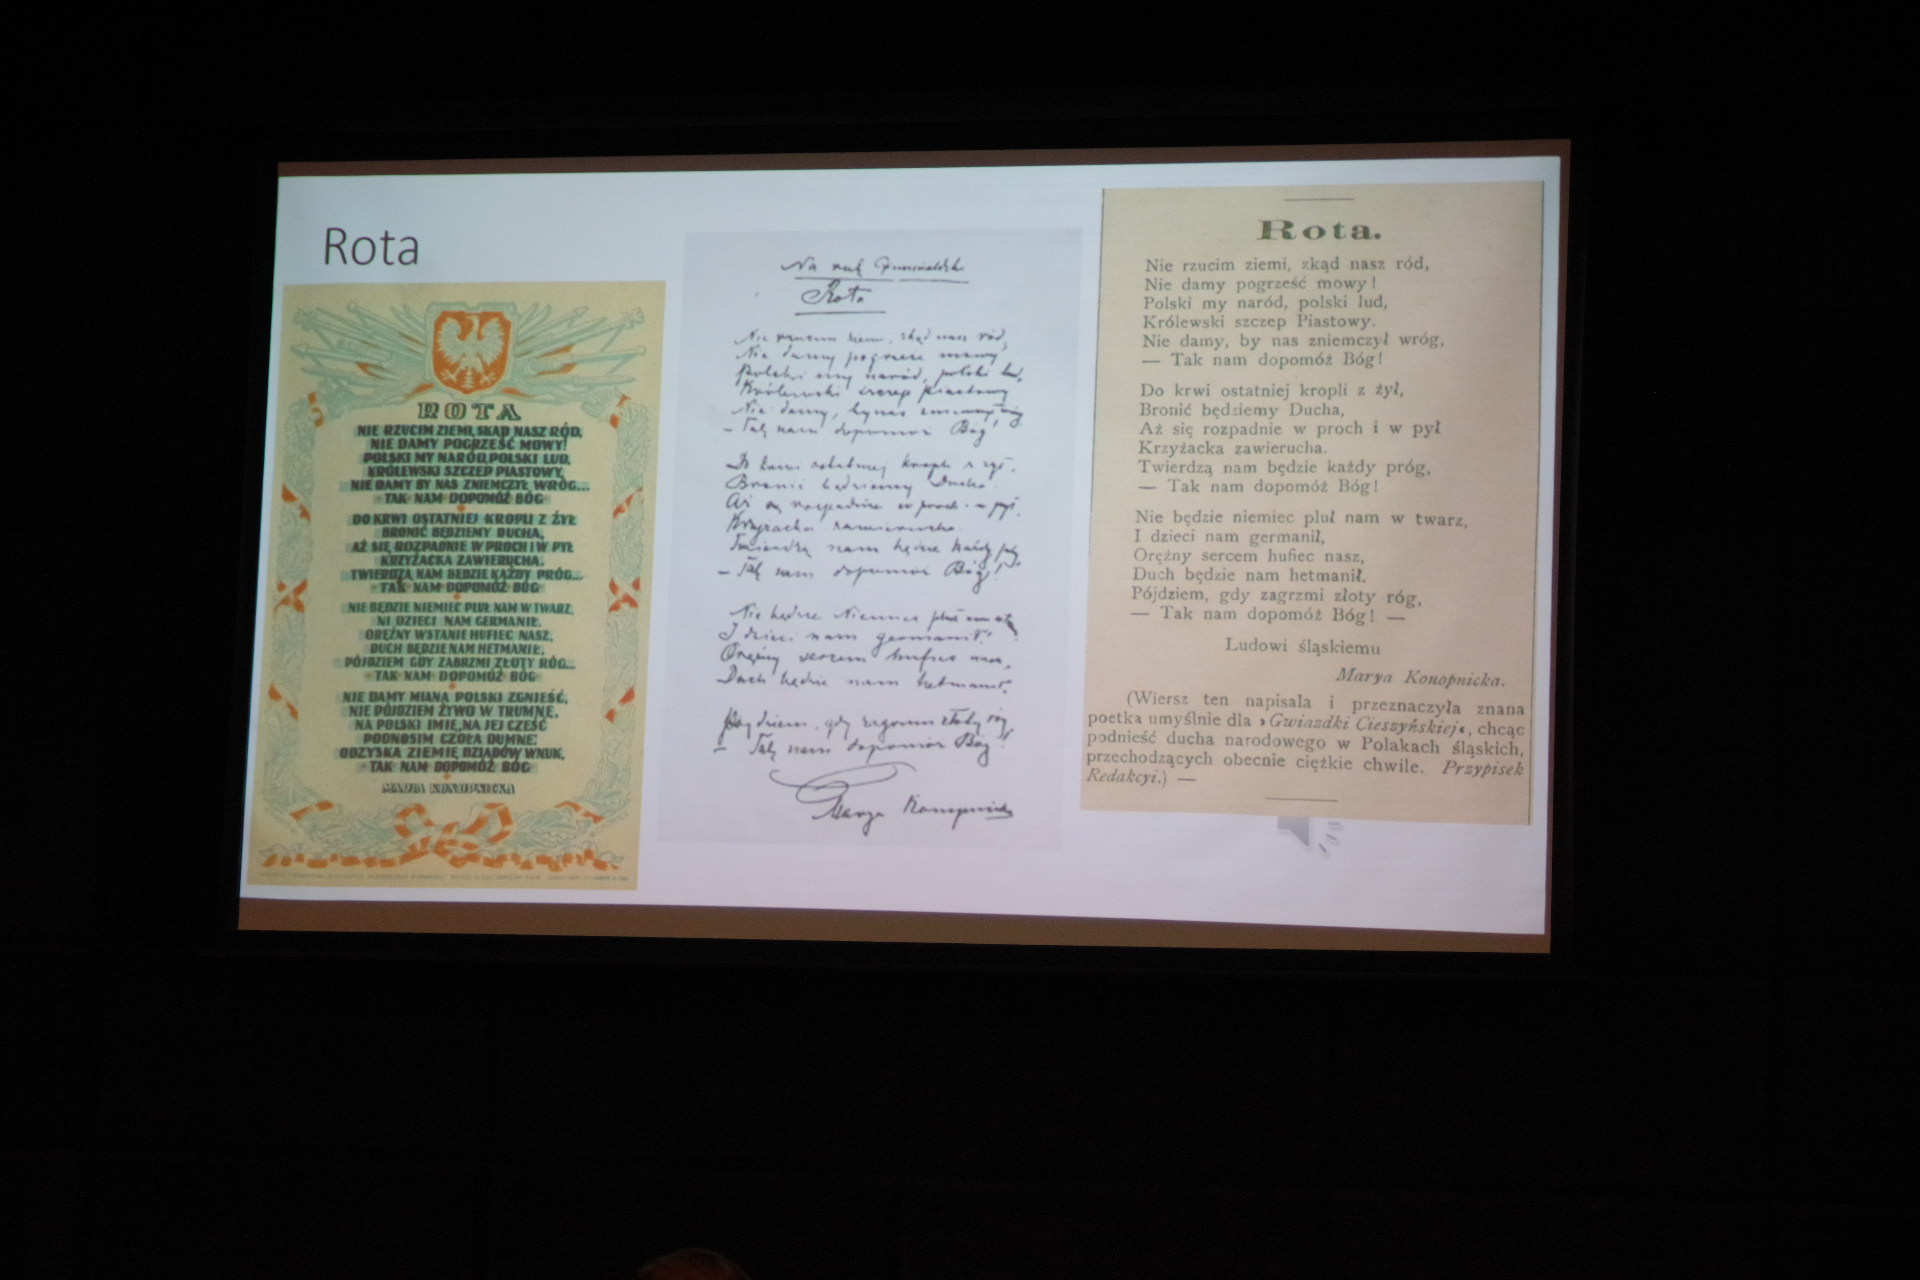 Rota
ROTA
NIE RZUCIM ZIEMI, SKĄD NASZ RÓD,
NIE DAMY POGRZEŚĆ MOWY!
POLSKI MY NARÓD, POLSKI LUD,
KRÓLEWSKI SZCZEP PIASTOWY,
NIE DAMY BY NAS ZNIEMCZYŁ WRÓG...
- TAK NAM DOPOMÓŻ BÓG
DO KRWI OSTATNIEJ KROPLI Z ŻYŁ
BRONIĆ BĘDZIEMY DUCHA,
AŻ SIĘ ROZPADNIE W PROCH I W PYŁ
KRZYŻACKA ZAWIERUCHA.
TWIERDZĄ NAM BĘDZIE KAŻDY PRÓG...
- TAK NAM DOPOMÓŻ BÓG
NIE BĘDZIE NIEMIEC PLUŁ NAM W TWARZ,
NI DZIECI NAM GERMANIŁ.
ORĘŻNY WSTANIE HUFIEC NASZ,
DUCH BĘDZIE NAM HETMANIŁ,
PÓJDZIEM GDY ZABRZMI ZŁOTY RÓG...
- TAK NAM DOPOMÓŻ BÓG
NIE DAMY MIANA POLSKI ZGNIEŚĆ,
NIE PÓJDZIEM ŻYWO W TRUMNĘ,
NA POLSKI IMIĘ, NA JEJ CZEŚĆ
PODNOSIM CZOŁA DUMNE;
ODZYSKA ZIEMIĘ DZIADÓW WNUK,
- TAK NAM DOPOMÓŻ BÓG
MARIA KONOPNICKA
Na rok Grunwaldzki
Rota
Nie rzucim ziemi, zkąd nasz ród,
Nie damy pogrześć mowy!
Polski my naród, polski lud,
Królewski szczep Piastowy
Nie damy, by nas zniemczył wróg
– Tak nam dopomóż Bóg!
Do krwi ostatniej kropli z żył,
Bronić będziemy Ducha
Aż się rozpadnie w proch i w pył,
Krzyżacka zawierucha.
Twierdzą nam będzie każdy próg,
– Tak nam dopomóż Bóg!
Nie będzie Niemiec pluł nam
I dzieci nam germanił.
Orężny sercem hufiec nasz,
Duch będzie nam hetmanił.
Pójdziem, gdy zagrzmi złoty róg,
– Tak nam dopomóż Bóg!
Marya Konopnicka
Rota.
Nie rzucim ziemi, zkąd nasz ród,
Nie damy pogrześć mowy!
Polski my naród, polski lud,
Królewski szczep Piastowy.
Nie damy, by nas zniemczył wróg,
— Tak nam dopomóż Bóg!
Do krwi ostatniej kropli z żył,
Bronić będziemy Ducha,
Aż się rozpadnie w proch i w pył
Krzyżacka zawierucha.
Twierdzą nam będzie każdy próg,
— Tak nam dopomóż Bóg!
Nie będzie niemiec pluł nam w twarz,
I dzieci nam germanił,
Orężny sercem hufiec nasz,
Duch będzie nam hetmanił.
Pójdziem, gdy zagrzmi złoty róg,
— Tak nam dopomóż Bóg! —
Ludowi śląskiemu
Marya Konopnicka.
(Wiersz ten napisała i przeznaczyła znana
poetka umyślnie dla »Gwiazdki Cieszyńskiej«, chcąc
podnieść ducha narodowego w Polakach śląskich,
przechodzących obecnie ciężkie chwile. Przypisek
Redakcyi.) —